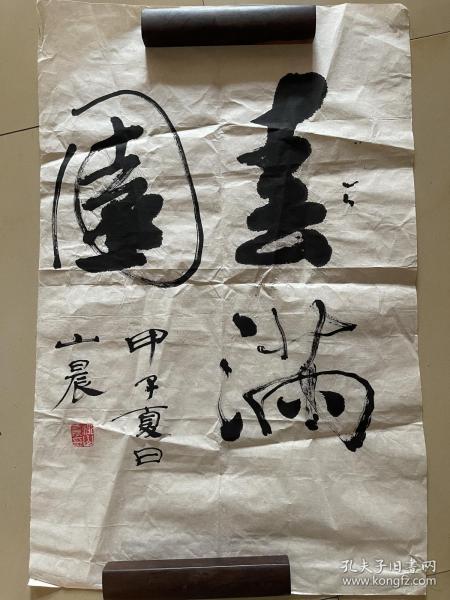 春满
園
甲子夏日
山晨
孔夫子旧书网
www.kongfz.com